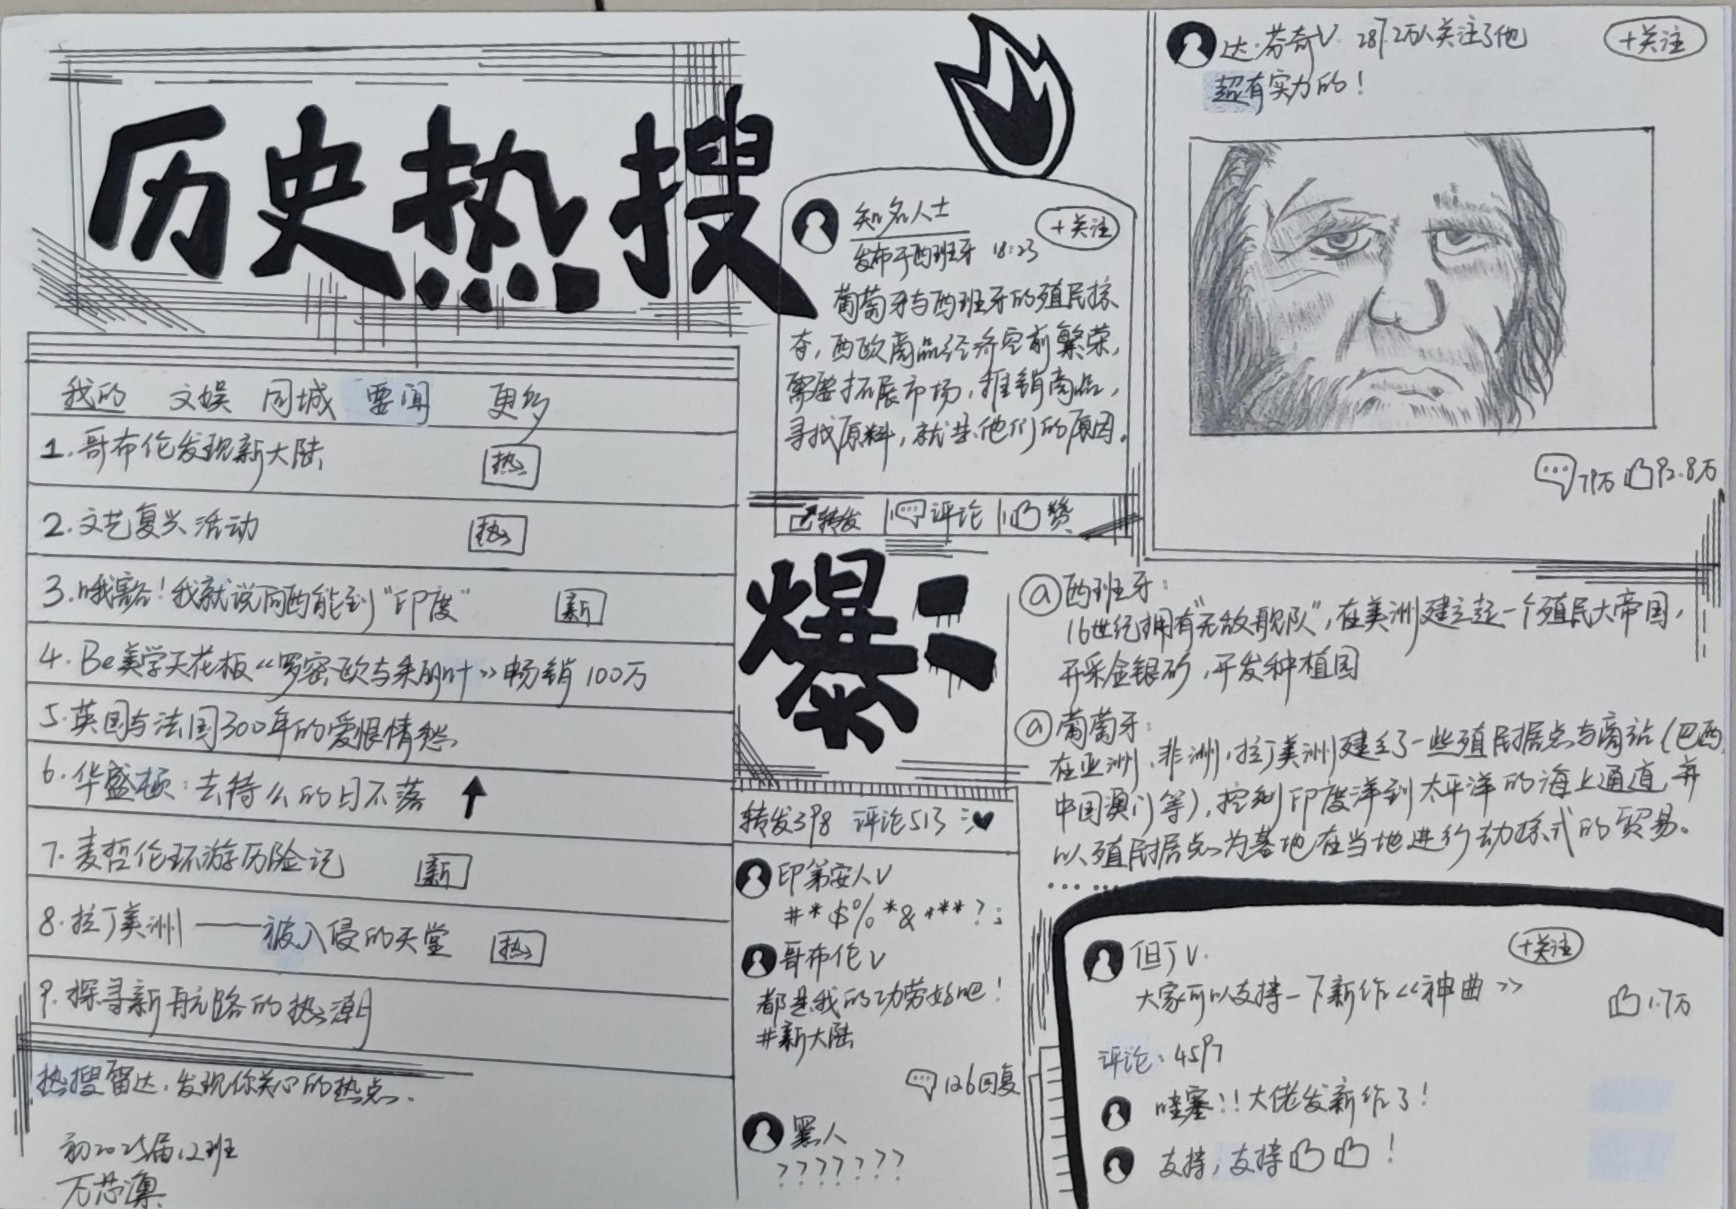 历史热搜
我的 文娱 同城 要闻 更多
1.哥布伦发现新大陆 热
2.文艺复兴活动 热
3.哦豁!我就说向西能到“印度” 新
4.Be美学天花板《罗密欧与朱丽叶》畅销100万
5.英国与法国300年的爱恨情愁
6.华盛顿:去特么的日不落
7.麦哲伦环游历险记 新
8.拉丁美洲——被入侵的天堂 热
9.探寻新航路的热潮
热搜雷达,发现你关心的热点.
初2025届12班
万芯澳
知名人士 +关注
发布于西班牙 18:23
葡萄牙与西班牙的殖民掠
夺,西欧商品经济空前繁荣,
需要拓展市场,推销商品,
寻找原料,就是他们的原因。
转发 评论 赞
爆:
转发398 评论513
印第安人V
#*$%*&***?;
哥布伦V
都是我的功劳好吧!
#新大陆
126回复
黑人
???????
达·芬奇V 287.2万人关注了他 +关注
超有实力的!
79万 92.8万
@西班牙:
16世纪拥有“无敌舰队”,在美洲建立起一个殖民大帝国,
开采金银矿,开发种植园
@葡萄牙:
在亚洲、非洲,拉丁美洲建立了一些殖民据点与商站(巴西,
中国澳门等),控制印度洋到太平洋的海上通道,并
以殖民据点为基地在当地进行劫掠式的贸易。
……
但丁V. +关注
大家可以支持一下新作《神曲》
1.7万
评论:4597
哇塞!!大佬发新作了!
支持,支持!